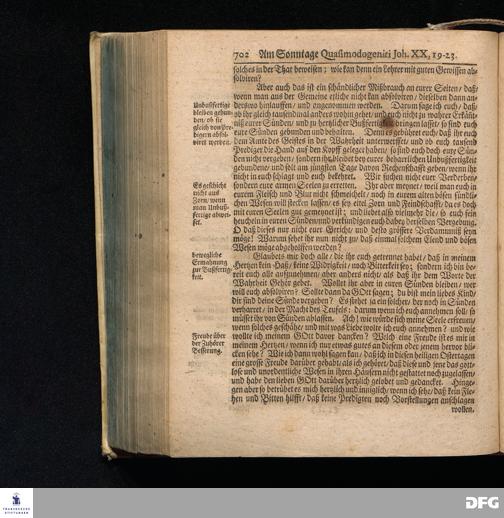 702 Am Sonntage Quasimodogeniti Joh. XX, 19-23.
solches in der That beweisen; wie kan denn ein Lehrer mit guten Gewissen ab-
solviren?
Aber auch das ist ein schändlicher Mißbrauch an eurer Seiten / daß/
wenn man aus der Gemeine etliche nicht kan absolviren / dieselben dann an-
derswo hinlauffen / und angenommen werden. Darum sage ich euch / daß/
ob ihr gleich tausendmal anders wohin gehet / und euch nicht zu wahrer Erkänt-
niß eurer Sünden / und zu hertzlicher Bußfertigkeit bringen lasset / so sind euch
eure Sünden gebunden und behalten. Denn es gebühret euch / daß ihr euch
dem Amte des Geistes in der Wahrheit unterwerffet / und ob euch tausend
Prediger die Hand auf den Kopff geleget haben / so sind euch doch eure Sün-
den nicht vergeben / sondern ihr bleibet bey eurer beharrlichen Unbußfertigkeit
gebunden / und sollt am jüngsten Tage davon Rechenschafft geben / wenn ihr
nicht in euch schlagt und euch bekehret. Wir suchen nicht euer Verderben /
sondern eure armen Seelen zu erretten. Ihr aber meynet / weil man euch in
eurem Fleisch und Blut nicht schmeichelt / noch in eurem alten bösen sündli-
chen Wesen will stecken lassen / es sey eitel Zorn und Feindschafft / da es doch
mit euren Seelen gut gemeynet ist; und liebet also vielmehr die / so euch sein
heucheln in euren Sünden / und verkündigen euch dabey derselben Vergebung.
O daß dieses nur nicht euer Gericht / und desto grössere Verdammniß seyn
möge! Warum sehet ihr nun nicht zu / daß einmal solchem Elend und bösen
Wesen möge abgeholffen werden?
Glaubets mir doch alle / die ihr euch getrennet habet / daß in meinem
Hertzen kein Haß / keine Widrigkeit / noch Bitterkeit sey; sondern ich bin be-
reit euch alle aufzunehmen / aber anders nicht / als daß ihr dem Worte der
Wahrheit Gehör gebet. Wollet ihr aber in euren Sünden bleiben / wer
will euch absolviren? Sollte dann da GOtt sagen; du bist mein liebes Kind /
dir sind deine Sünde vergeben? Es stehet ja ein solcher / der noch in Sünden
verharret / in der Macht des Teufels: darum wenn ich euch annehmen soll / so
müsset ihr von Sünden ablassen. Ach! wie würde sich meine Seele erfreuen /
wenn solches geschähe / und mit was Liebe wolte ich euch annehmen? und wie
wollte ich meinem GOtt davor dancken? Welch eine Freude ist es mir in
meinem Hertzen / wenn ich nur etwas gutes an diesem oder jenem hervor bli-
cken sehe? Wie ich dann wohl sagen kan / daß ich in diesen heiligen Ostertagen
eine grosse Freude darüber gehabt / als ich gehöret / daß diese und jene das gott-
lose und unordentliche Wesen in ihren Häusern nicht gestattet noch zugelassen /
und habe den lieben GOtt darüber hertzlich gelobet und gedancket. Hinge-
gen aber so betrübet es mich hertzlich und inniglich / wenn ich sehe / daß kein Fle-
hen und Bitten hilfft / daß keine Predigten noch Vorstellungen anschlagen
wollen.
Unbußfertige
bleiben gebun-
den / ob sie
gleich von Pre-
digern absol-
viret werden.
Es geschicht
nicht aus
Zorn / wenn
man Unbuß-
fertige abwei-
set.
bewegliche
Ermahnung
zur Bußfertig-
keit.
Freude über
der Zuhörer
Besserung.
FRANCKESCHE
STIFTUNGEN
DFG